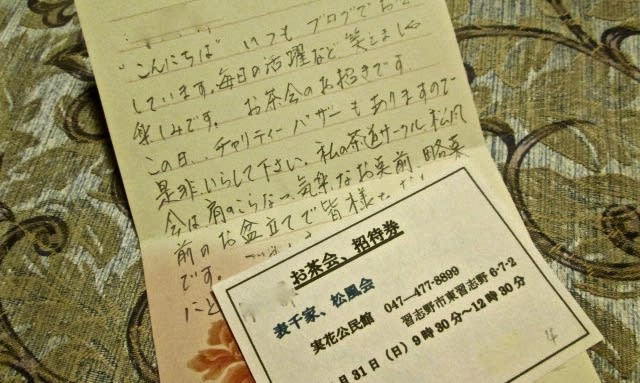 "こんにちは" いつも ブログでお
しています。毎日の活躍など 笑
楽しみです。 お茶会のお招きです
この日、チャリティー バザー もありますので
是非いらして下さい。私の茶道サークル 松風
会は、肩のこらない気楽なお 前 略
前のお盆立てで 皆様
です。
お茶会、招待券
表千家、松風会
実花公民館 047―477-8899
習志野市東習志野6-7-2
月31日(日)9時30分~12時30分